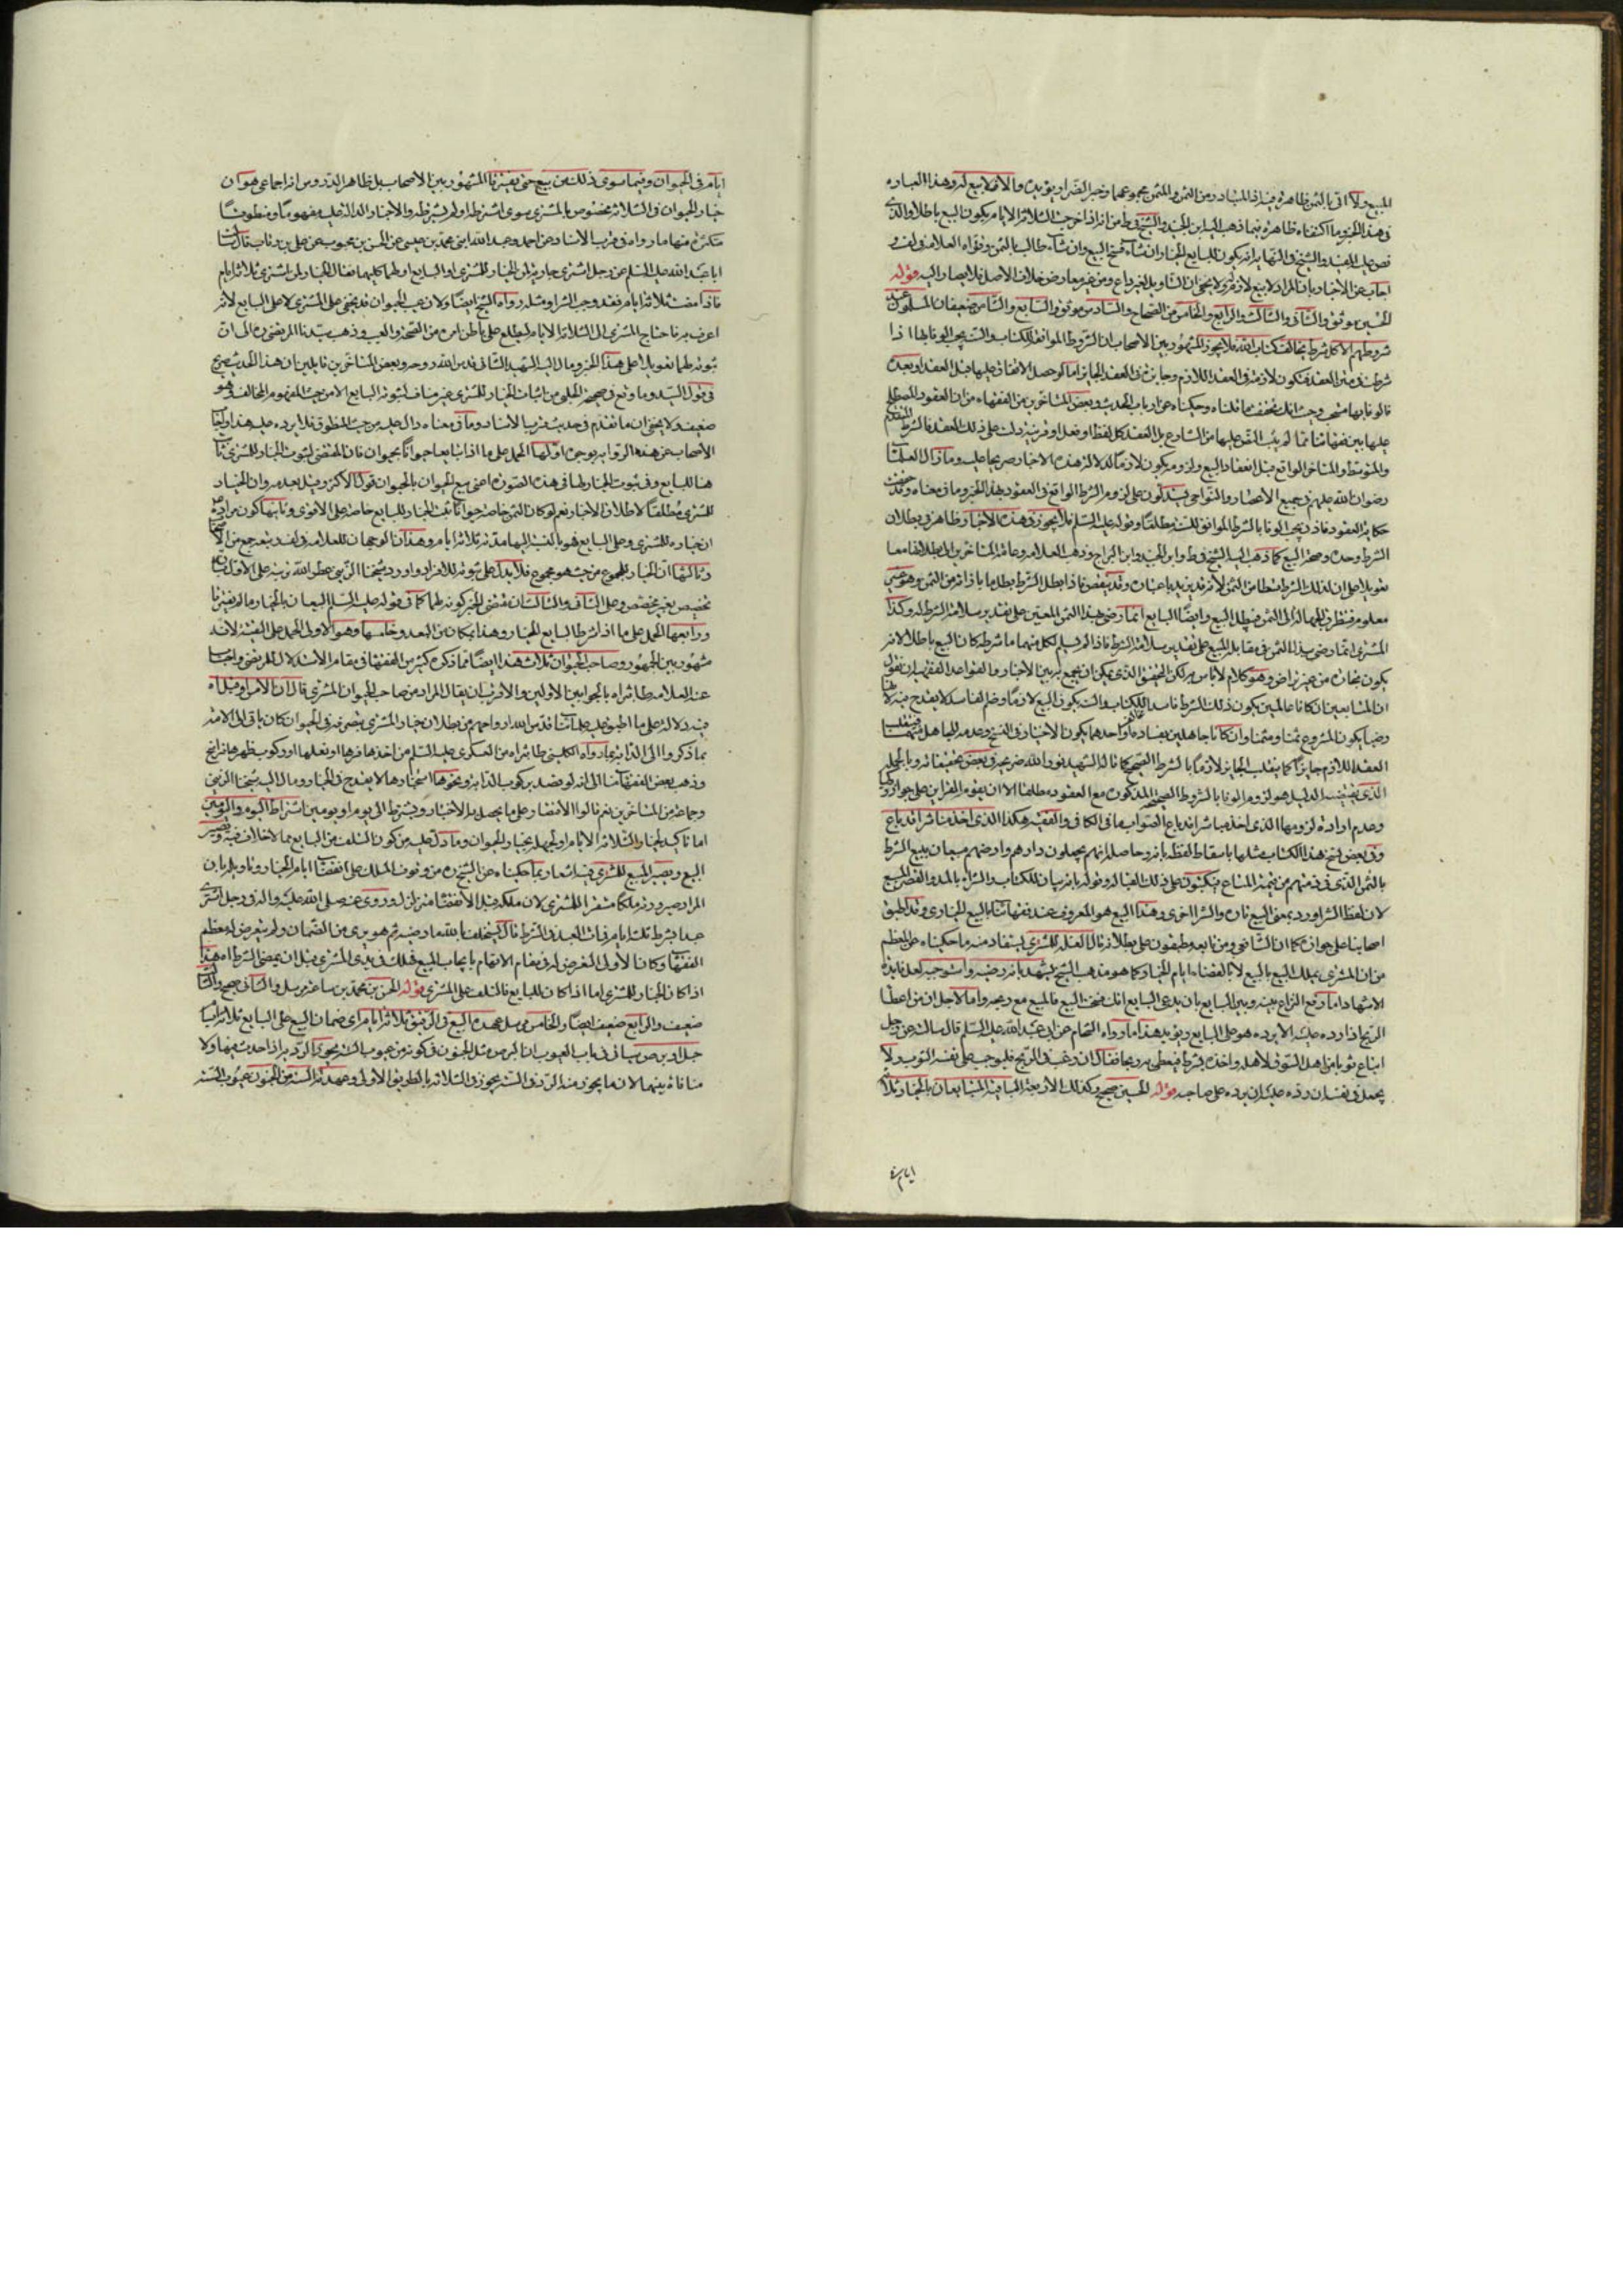 المبيع ولا اتى بالثمن ظاهره فيه اذ المتبادر من الثمن والمثمن مجموعهما وخبر الضرار يؤيده والا فلا بيع له وهذه العباره
في هذا الخبر وما اكتفاه ظاهره فيما ذهب اليه ابن الجنيد والشيخ في ط من انه اذا خرجت الثلاثة الايام يكون البيع باطلا والذي
نص عليه المفيد والشيخ في النهايه انه يكون للبايع الخيار ان شاء فسخ البيع وان شاء طالب بالثمن وقواه العلامه في لف و
اجاب عن الاخبار بان المراد لا بيع لازم له ولا يخفى ان التاويل لغير داع ومن غير معارض خلاف الاصل فلا يصار اليه قوله
الحسين موثق والثاني والثالث والرابع والخامس من الصحاح والسادس موثق والسابع والثامن ضعيفان المسلمون عند
شروطهم الا كل شرط يخالف كتاب الله فلا يجوز المشهور بين الاصحاب ان الشروط الموافقة للكتاب والسنه يجب الوفا بها اذا
شرطت في متن العقد فتكون لازمة في العقد اللازم وجايزة في العقد الجايز اما لو حصل الاتفاق عليها قبل العقد او بعده
فالوفا بها مستحب وحيث انك تحققت ما تلناه وحكيناه عن ارباب الحديث وبعض المتاخرين من الفقهاء من ان العقود المصطلح
عليها بين فقهائنا مما لم يثبت النص عليها من الشارع بل العقد كل لفظ او فعل او قرينه دلت على ذلك العقد فالشرط المتقدم
والمتوسط والمتاخر الواقع قبل انعقاد البيع ولزومه يكون لازما لدلاله هذه الاخبار صريحا عليه وما زال العلماء
رضوان الله عليهم في جميع الاعصار والنواحي يستدلون على لزوم الشرط الواقع في العقود بهذا الخبر وما في معناه وقد عرفت
حكاية العقود فاذن يجب الوفا بالشرط الموافق للسنه مطلقا وقوله عليه السلم فلا يجوز في هذه الاخبار ظاهر في بطلان
الشرط وحده وصحة البيع كما ذهب اليه الشيخ في ط وابن الجنيد وابن البراج وذهب العلامه وعامة المتاخرين الى بطلانهما معا
تعويلا على ان لذلك الشرط قسطا من الثمن لانه قد يزيد باعتباره وقد ينقص فاذا بطل الشرط بطل ما بازائه من الثمن وهو غير
معلوم فيتطرق الجهالة الى الثمن فيبطل البيع وايضا البايع انما رضى بهذا الثمن المعين على تقدير سلامة الشرط له وكذا
المشتري انما رضى بذل الثمن في مقابلة المبيع على تقدير سلامة الشرط فاذا لم يسلم لكل منهما ما شرطه كان البيع باطلا لانه
يكون تجارة من غير تراض وهو كلام لا باس به لكن التحقيق الذي يمكن ان يجمع به بين الاخبار والقواعد الفقهيه ان نقول
ان المتبايعين ان كانا عالمين بكون ذلك الشرط فاسدا للكتاب والسنه يكون البيع لازما وضم الفاسد لا يقدح فيه لانهما
رضيا بكون المشروع ثمنا ومثمنا وان كانا جاهلين بفساده او احدهما يكون الاختيار في الفسخ وعدمه للجاهل منهما فينقلب
العقد اللازم جايزا كما ينقلب الجايز لازما بالشرط الصحيح كما قاله الشهيد نور الله ضريحه في بعض تحقيقاته وبالجمله
الذي يقتضيه الدليل هو لزوم الوفا بالشروط الصحيحه المذكوره مع العقود مطلقا الا ان يقوم القراين على جواز تركها
وعدم اراده لزومها الذي اخذ مباشر انه باع الصواب ما في الكافي والفقيه هكذا الذي اخذ مناشر انه باع
وفي بعض نسخ هذا الكتاب مثلها باسقاط لفظه بانه وحاصله انهم يجعلون دارهم وارضهم مبيعا ببيع الشرط
بالثمن الذي في ذمتهم من قيمة المتاع فيكتبون على ذلك القباله وقوله بانه بيان للكتاب والشراء بالمد والقصر للبيع
لان لفظ الشرا ورد بمعنى البيع تاره والشرا اخرى وهذا البيع هو المعروف عند فقهائنا بالبيع الخياري وقد اطبق
اصحابنا على جوازه كما ان الشافعي ومن تابعه مطبقون على بطلانه قال الغله للمشتري يستفاد منه ما حكيناه عن المعظم
من ان المشتري يملك المبيع بالبيع لا بانقضاء ايام الخيار كما هو مذهب الشيخ يشهد بانه رضيه واستوجبه لعل فايده
الاشهاد اما رفع النزاع بينه وبين البايع بان يدعي البايع انك فسخت البيع فالمبيع مع ربحه واما لاجل ان من اعطا
الربح اذا رده عليه الا يرده هو على البايع ويؤيد هذا ما رواه الشحام عن ابي عبد الله عليه السلم قال سالته عن رجل
ابتاع ثوبا من اهل السوق لاهله واخذه بشرط فيعطى به ربحا فقال ان رغب في الربح فليوجب على نفسه الثوب ولا
يجعل في نفسه ان رده عليه ان يرده على صاحبه قوله الحسين صحيح وكذلك الاربعة الباقيه المتبايعان بالخيار ثلاثة
ايام في
ايام في الحيوان وفيما سوى ذلك من بيع حتى يفترقا المشهور بين الاصحاب بل ظاهر الدروس انه اجماعي هو ان
خيار الحيوان في الثلاثه مخصوص بالمشتري سوى اشترطه او لم يشترطه والاخبار الدالة عليه مفهوما ومنطوقا
متكثره منها ما رواه في قرب الاسناد عن احمد وعبد الله ابني محمد بن عيسى عن الحسن بن محبوب عن علي بن رئاب قال سالت
ابا عبد الله عليه السلم عن رجل اشترى جارية لمن الخيار للمشتري او البايع او لهما كليهما فقال الخيار لمن اشترى ثلاثة ايام
فاذا مضت ثلاثة ايام فقد وجب الشرا ومثله رواه الشيخ ايضا ولان عيب الحيوان قد يخفى على المشتري لا على البايع لانه
اعرف به فاحتاج المشتري الى الثلاثة الايام ليطلع على باطن امره من الصحه والعيب وذهب سيدنا المرتضى ره الى ان
ثبوته لهما تعويلا على هذا الخبر ومال اليه الشهيد الثاني قدس الله روحه وبعض المتاخرين قايلين ان هذا الحديث صريح
في قول السيد وما وقع في صحيحة الحلبي من اثبات الخيار للمشتري غير مناف لثبوته البايع الا من حيث المفهوم المخالف وهو
ضعيف ولا يخفى ان ما تقدم في حديث قرب الاسناد وما في معناه دال عليه من حيث المنطوق فلا يرد عليه هذا واجاب
الاصحاب عن هذه الرواية بوجوه اولها الحمل على ما اذا تبايعا حيوانا بحيوان فان المقتضى لثبوت الخيار للمشتري ثابت
هنا للبايع وفي ثبوت الخيار لهما في هذه الصورة اعني بيع الحيوان بالحيوان قولا الاكثر وقيل بعدمه وان الخيار
للمشتري مطلقا لاطلاق الاخبار نعم لو كان الثمن خاصة حيوانا ثبت الخيار للبايع خاصة على الاقوى وثانيها كون مراده
ان خياره للمشتري وعلى البايع فهو بالنسبة اليهما مدته ثلاثة ايام وهذان الوجهان للعلامه في لف وتبعه جمع من الاصحاب
وثالثها ان الخيار للمجموع من حيث هو مجموع فلا يدل على ثبوته للافراد واورد شيخنا الزيني عطر الله تربته على الاول
تخصيص بغير مخصص وعلى الثاني والثالث ان مقتضى الخبر كونه لهما كما في قوله عليه السلم البيعان بالخيار ما لم يفترقا
ورابعها الحمل على ما اذا شرطا للبايع الخيار وهذا بمكان من البعد وخامسها وهو الاولى الحمل على التقيه لانه
مشهور بين الجمهور وصاحب الحيوان ثلاث هذا ايضا مما ذكره كثير من الفقهاء في مقام الاستدلال للمرتضى واجاب
عنه العلامه طاب ثراه بالجوابين الاولين والاقرب ان يقال المراد من صاحب الحيوان المشتري قال ان الامراء وقيله
فيه دلاله على ما اطبق عليه علمائنا قدس الله ارواحهم من بطلان خيار المشتري بتصرفه في الحيوان كان باق الى الامه
بما ذكر والى الدابه بما رواه الكليني طاب ثراه من العسكري عليه السلم من اخذ حافرها او نعلها او ركوب ظهرها فراسخ
وذهب بعض الفقهاء منا الى انه لو قصد بركوب الدابه ونحوها استخبارها لا يقدح في الخيار ومال اليه شيخنا الزيني
وجماعة من المتاخرين نعم قالوا الاقتصار على ما يحصل به الاختبار ويشترط الى يوم او يومين اشتراط اليوم واليومين
اما تاكيد لخيار الثلاثة الايام او لجهله بخيار الحيوان وما دل عليه من كون التلف من البايع مما لا خلاف فيه ويصير
البيع ويصير المبيع للمشتري فيه اشعار بما حكيناه عن الشيخ ره من وقوف الملك على انقضاء ايام الخيار وتاويله بان
المراد صيرورته ملكا مستقرا للمشتري لان ملكه قبل الانقضاء متزلزل وروى عنه صلى الله عليه واله في رجل اشترى
عبدا بشرط ثلثة ايام فمات العبد في الشرط قال يستحلف بالله ما رضيه ثم هو بري من الضمان ولم يتعرض له معظم
الفقهاء وكان الاولى التعرض له في مقام الاتهام بايجاب المبيع فهلك في يدي المشتري قبل ان يمضي الشرط اه هذا
اذا كان الخيار للمشتري اما اذا كان للبايع فالتلف على المشتري قوله الحسن بن محمد بن سماعه مرسل والثاني صحيح والثالث
ضعيف والرابع ضعيف ايضا والخامس مرسل عهده البيع في الرقيق ثلاثة ايام اى ضمان البيع على البايع ثلاثة ايام
في باب العيوب ان البرص مثل الجنون في كونه من عيوب السنه يجوز الرد به اذا حدث فيها ولا
منافاة بينهما لان ما يجوز منه الرد في السنه يجوز في الثلاثه بالطريق الاولى وعهدته السنه من الجنون عيوب السنه